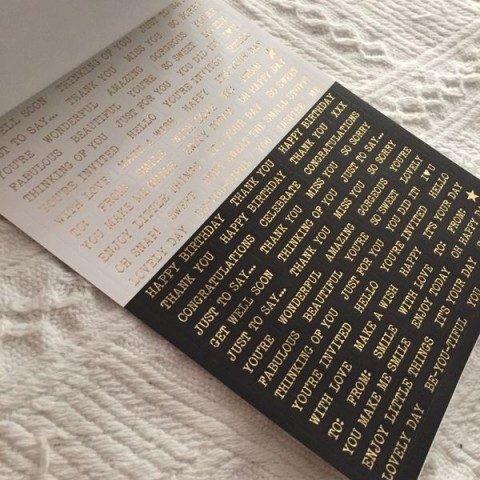 JUST TO SAY...
THINKING OF YOU
THANK YOU MISS YOU SO SORRY
GET WELL SOON
AMAZING GORGEOUS YOU'RE
JUST TO SAY...
WONDERFUL YOU'RE SO SWEET
YOU'RE BEAUTIFUL JUST FOR YOU YOU DID IT!
FABULOUS HELLO YOU'RE INVITED HELLO
THINKING OF YOU HAPPY IT'S YOUR DAY
YOU'RE INVITED MAKE A WISH
WITH LOVE SMILE WITH LOVE TO: FROM:
TO: FROM: OH HAPPY DAY
YOU MAKE ME SMILE
ENJOY LITTLE THINGS
OH SNAP!
LOVELY DAY
HAPPY BIRTHDAY THANK YOU HAPPY BIRTHDAY
THANK YOU HAPPY BIRTHDAY THANK YOU XXX
CONGRATULATIONS CELEBRATE CONGRATULATIONS
JUST TO SAY... THINKING OF YOU MISS YOU SO SORRY
GET WELL SOON THANK YOU MISS YOU JUST TO SAY...
JUST TO SAY... AMAZING GORGEOUS SO SORRY
YOU'RE WONDERFUL YOU'RE SO SWEET YOU'RE
FABULOUS BEAUTIFUL JUST FOR YOU YOU DID IT! I ♥ U
THINKING OF YOU HELLO YOU'RE INVITED HELLO
YOU'RE INVITED MAKE A WISH HAPPY IT'S YOUR DAY
WITH LOVE SMILE WITH LOVE TO: FROM:
TO: FROM: SMILE ENJOY TODAY OH HAPPY DAY
YOU MAKE ME SMILE IT'S YOUR DAY
ENJOY LITTLE THINGS
LOVELY DAY BE-YOU-TIFUL YOU